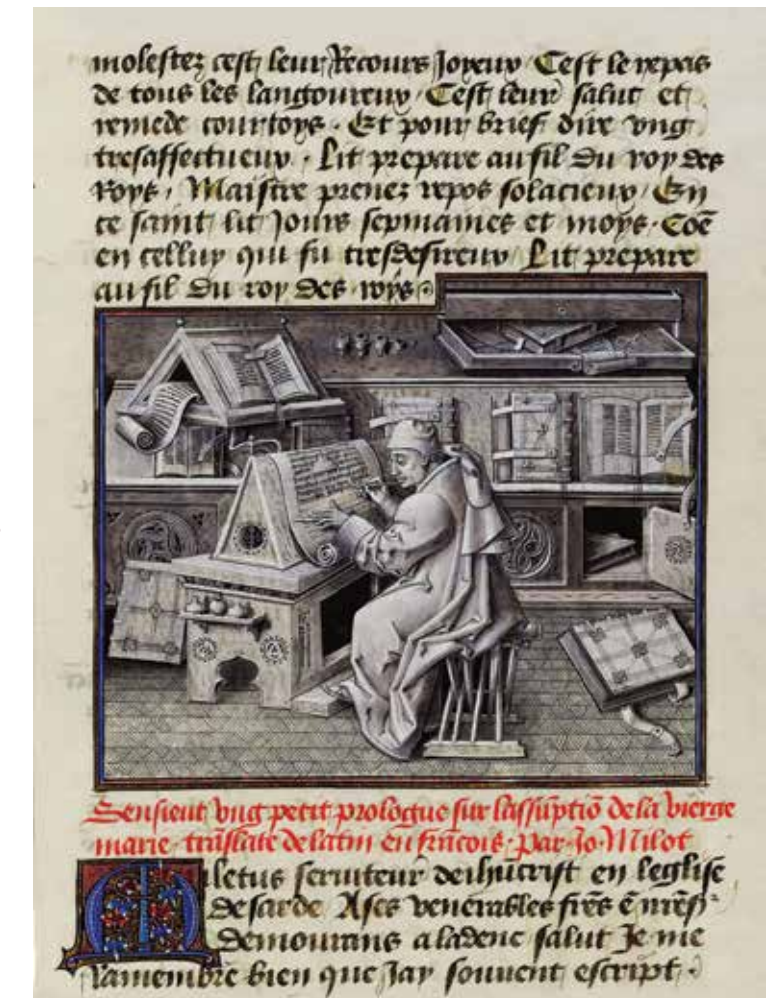 molestez cest leur Recours Joyeux Cest le repas
de tous les langoureux / Cest leur salut et
remede courtoys. Et pour brief dire vng
tresaffectueux. Lit prepare au fil du roy des
Roys / Maistre prenez repos solacieux / En
ce saint lit Jours sepmaines et moys. Coē
en celluy qui fu tresdesireux / Lit prepare
au fil du roy des roys
Sensieut vng petit prologue sur lassūptiō de la vierge
marie. trāslate de latin en francois. par Jo Milot
Miletus seruiteur de ihūcrist en leglise
de sarde Ases venerables freēs ē nrē
demourans a ladence salut Je me
Ramembre bien que Jay souuent escript.